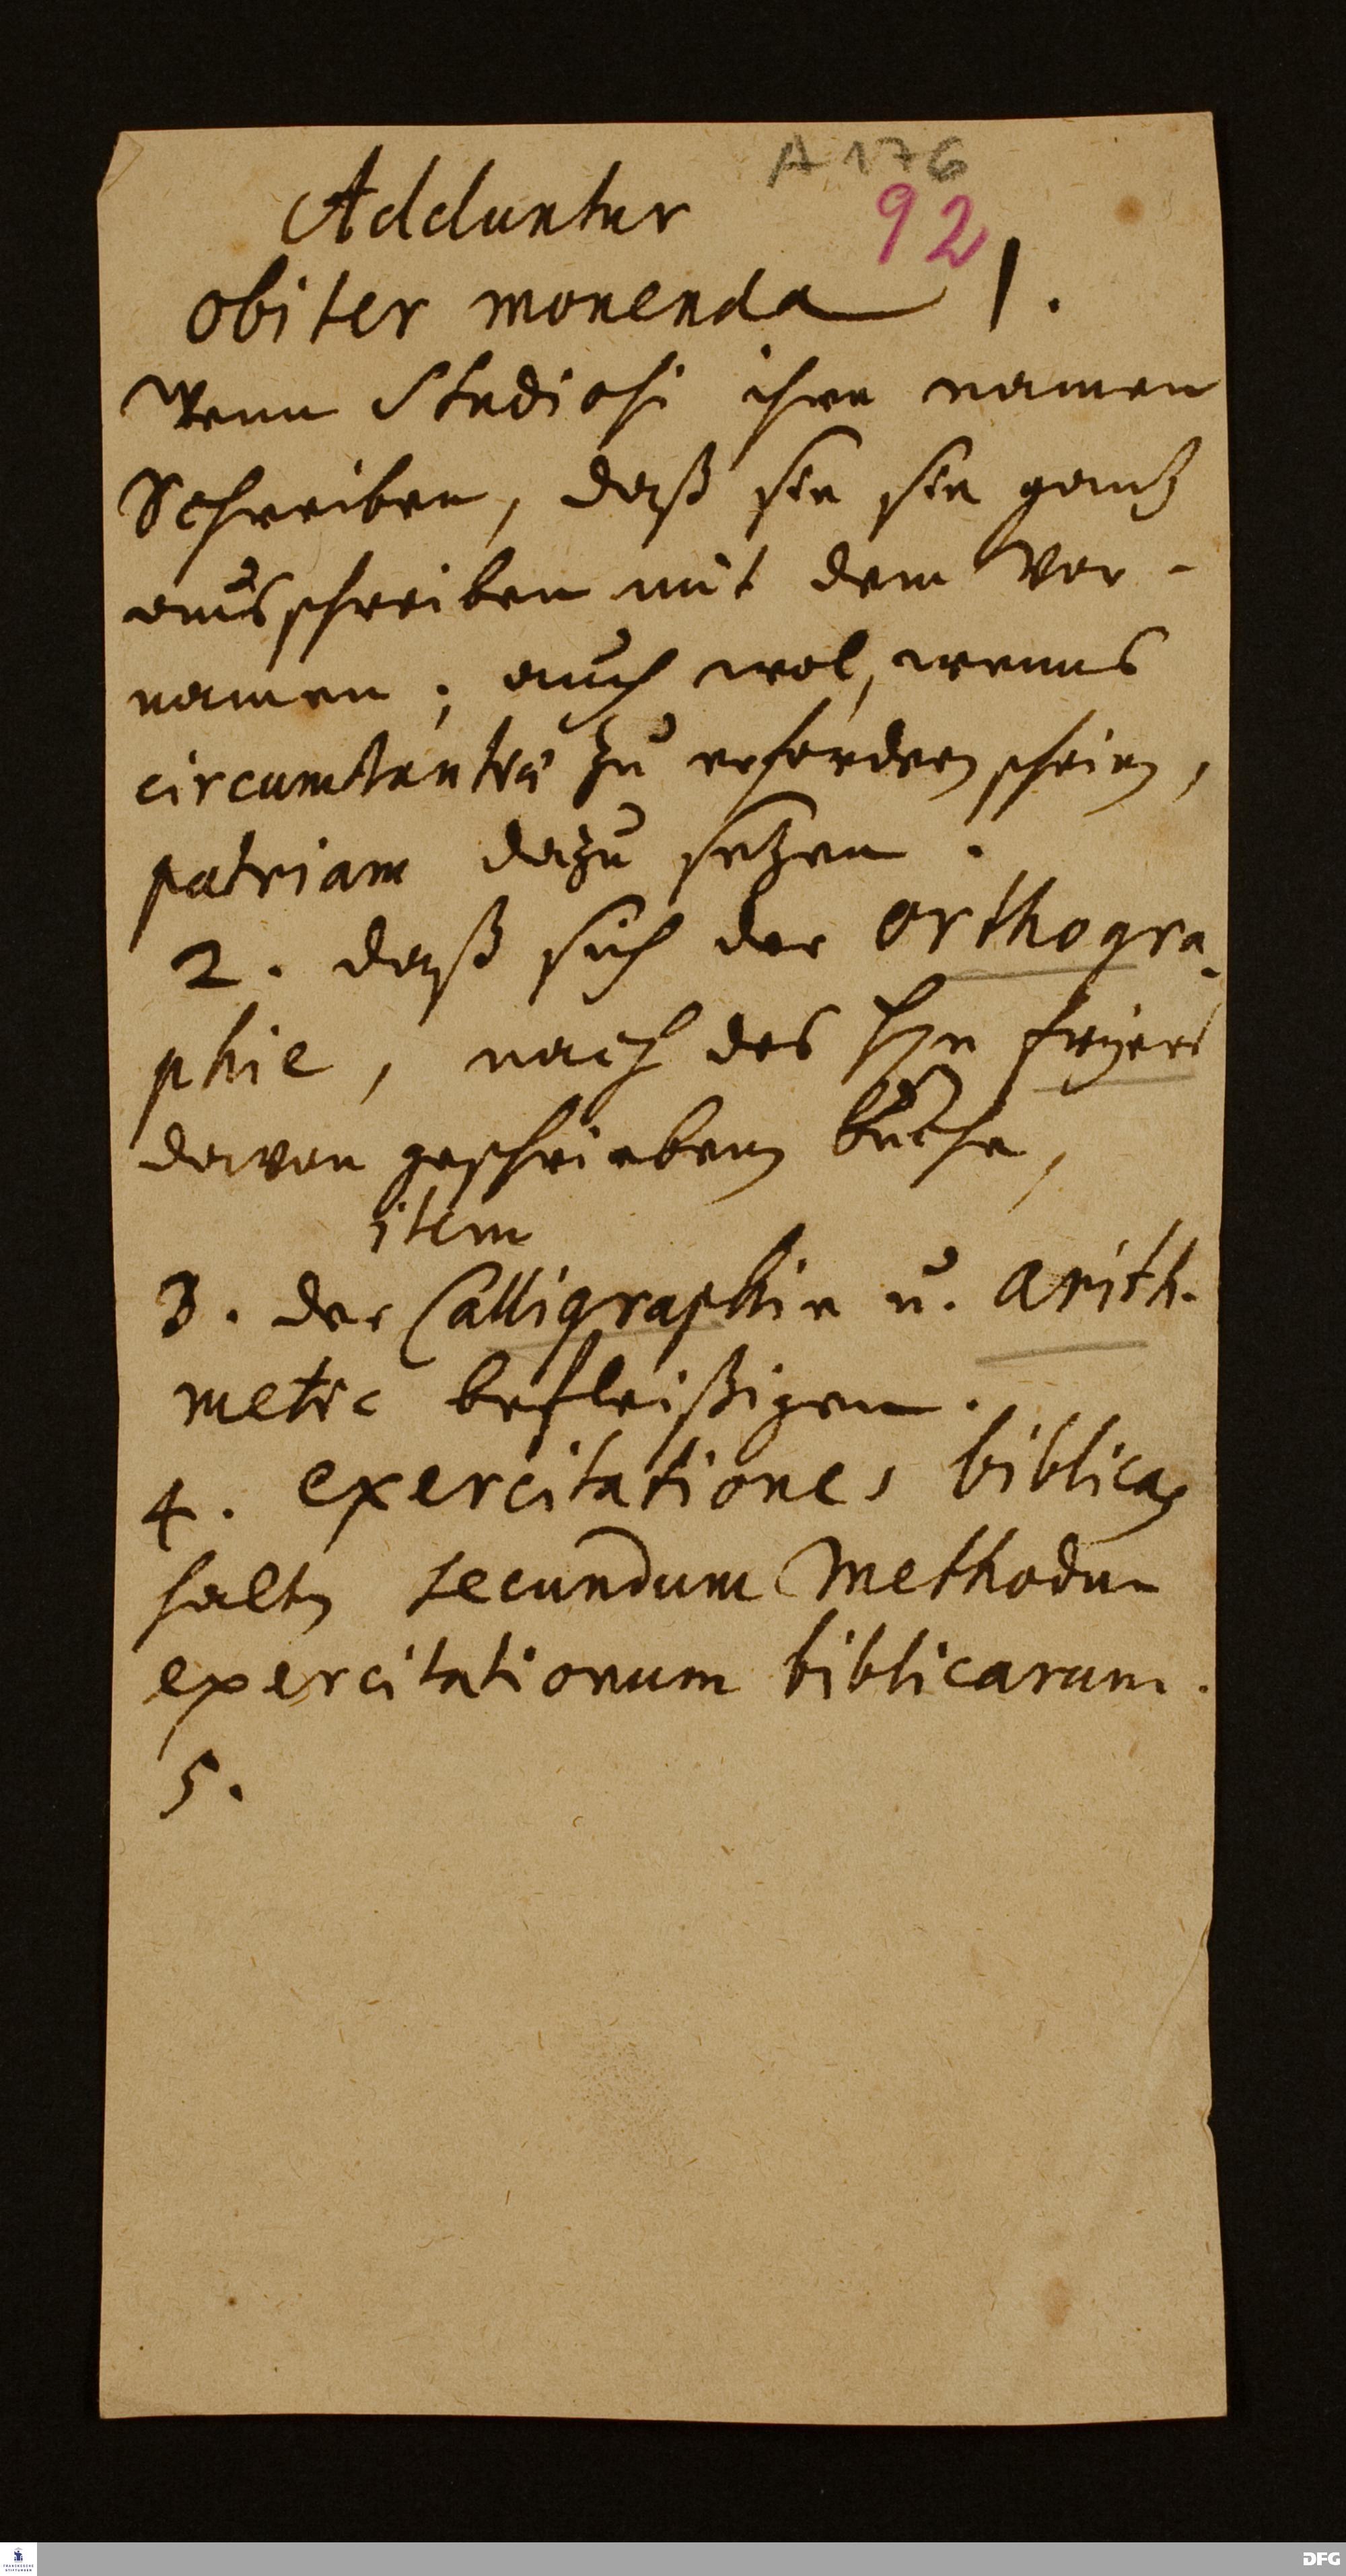 A 176
Adduntur
92
obiter monenda 1.
Wenn Studiosi ihre namen
Schreiben, daß sie sie gantz
ausschreiben mit dem Vor-
namen; auch wol, wenns
circumstantiæ zu erfordern scheinen,
patriam dazu setzen.
2. daß sich der orthogra-
phie, nach des Hrn Freyers
davon geschriebenen buche,
item
3. der Calligraphie u. arith-
metic befleißigen.
4. exercitationes biblicas
halten secundum Methodum
exercitationum biblicarum.
5.
FRANCKESCHE
STIFTUNGEN
DFG